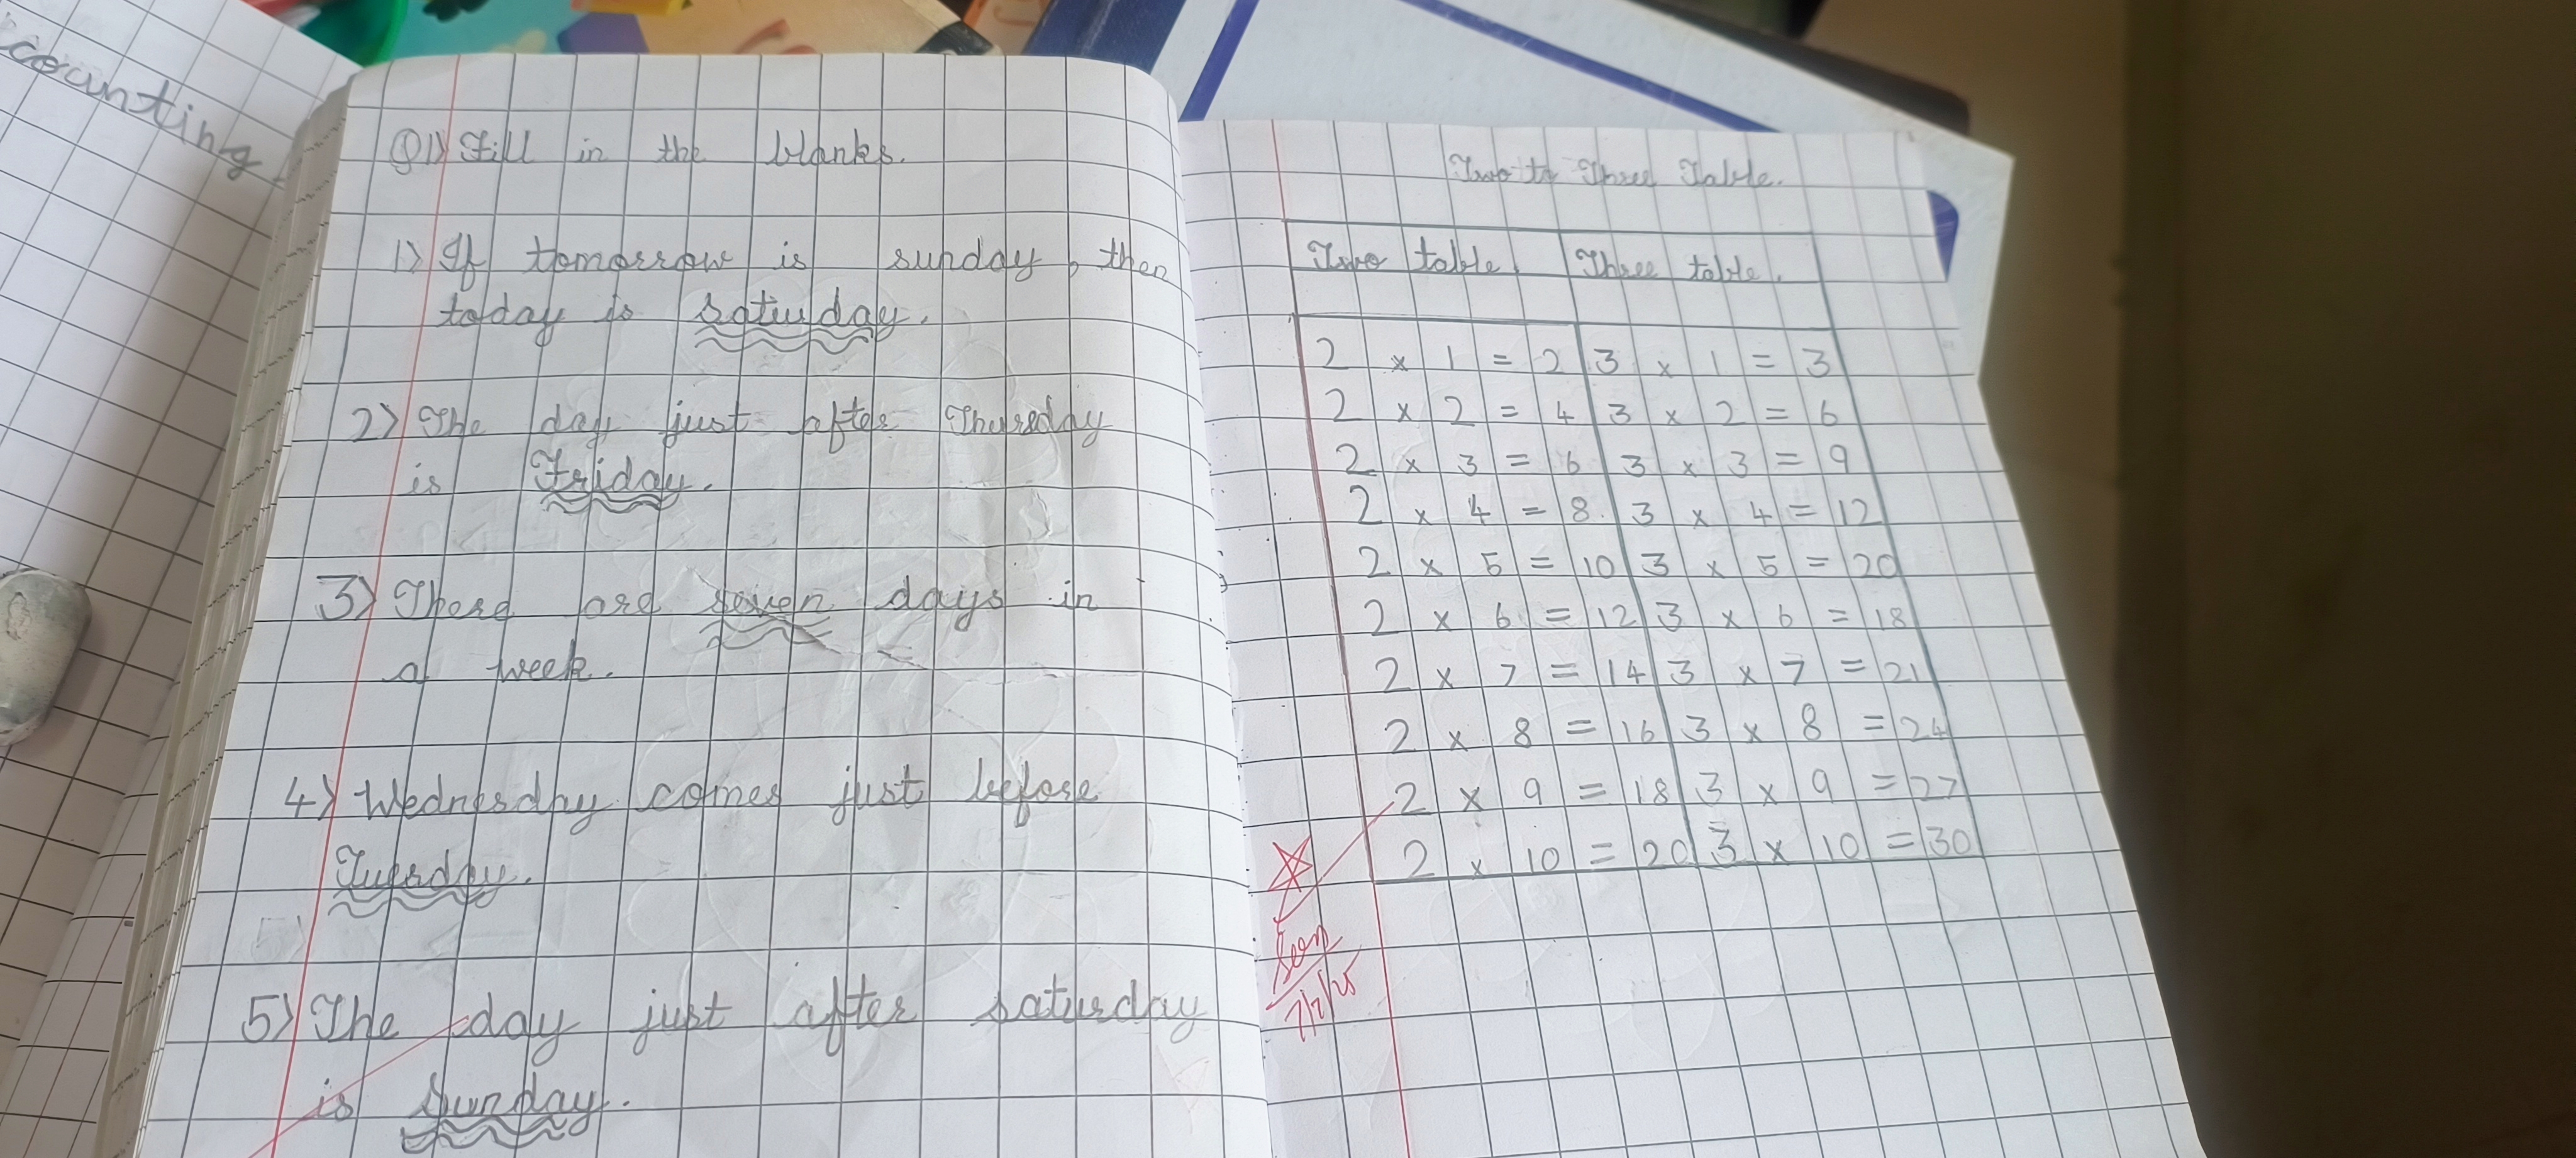 counting
Q1) Fill in the blanks.
1) If tomorrow is sunday, then
today is saturday.
2) The day just after Thursday
is Friday.
3) There are seven days in
a week.
4) Wednesday comes just before
Tuesday.
5) The day just after saturday
is Sunday.
Two to Three Table.
Two table. Three table.
2 × 1 = 2 3 × 1 = 3
2 × 2 = 4 3 × 2 = 6
2 × 3 = 6 3 × 3 = 9
2 × 4 = 8 3 × 4 = 12
2 × 5 = 10 3 × 5 = 20
2 × 6 = 12 3 × 6 = 18
2 × 7 = 14 3 × 7 = 21
2 × 8 = 16 3 × 8 = 24
2 × 9 = 18 3 × 9 = 27
2 × 10 = 20 3 × 10 = 30
Seen